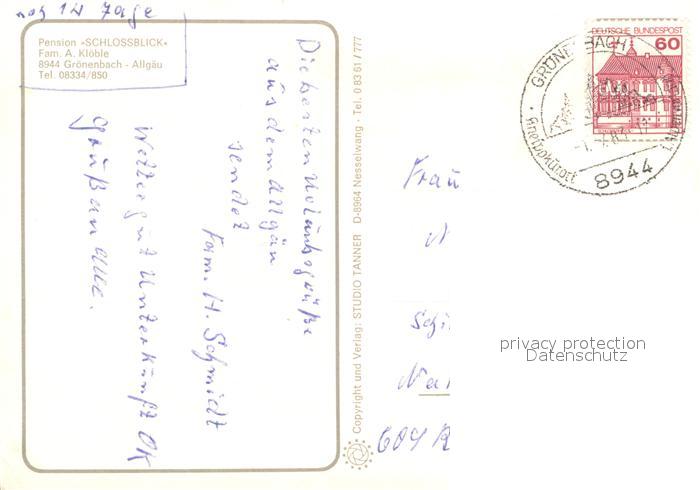 noch 14 Tage
Pension »SCHLOSSBLICK«
Fam. A. Klöble
8944 Grönenbach - Allgäu
Tel. 08334/850
Die besten Urlaubsgrüße
aus dem Allgäu
sendet
Fam. H. Schmidt
Wetter gut Unterkunft OK
Gruß an alle.
Copyright und Verlag: STUDIO TANNER D-8964 Nesselwang - Tel. 0 83 61 / 777
DEUTSCHE BUNDESPOST
60
GRÖNENBACH
Kneippkurort
8944
Frau
privacy protection
Datenschutz